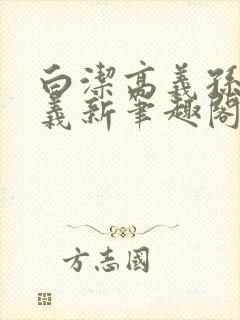 白潔高義孫
義新筆趣閣
方志國